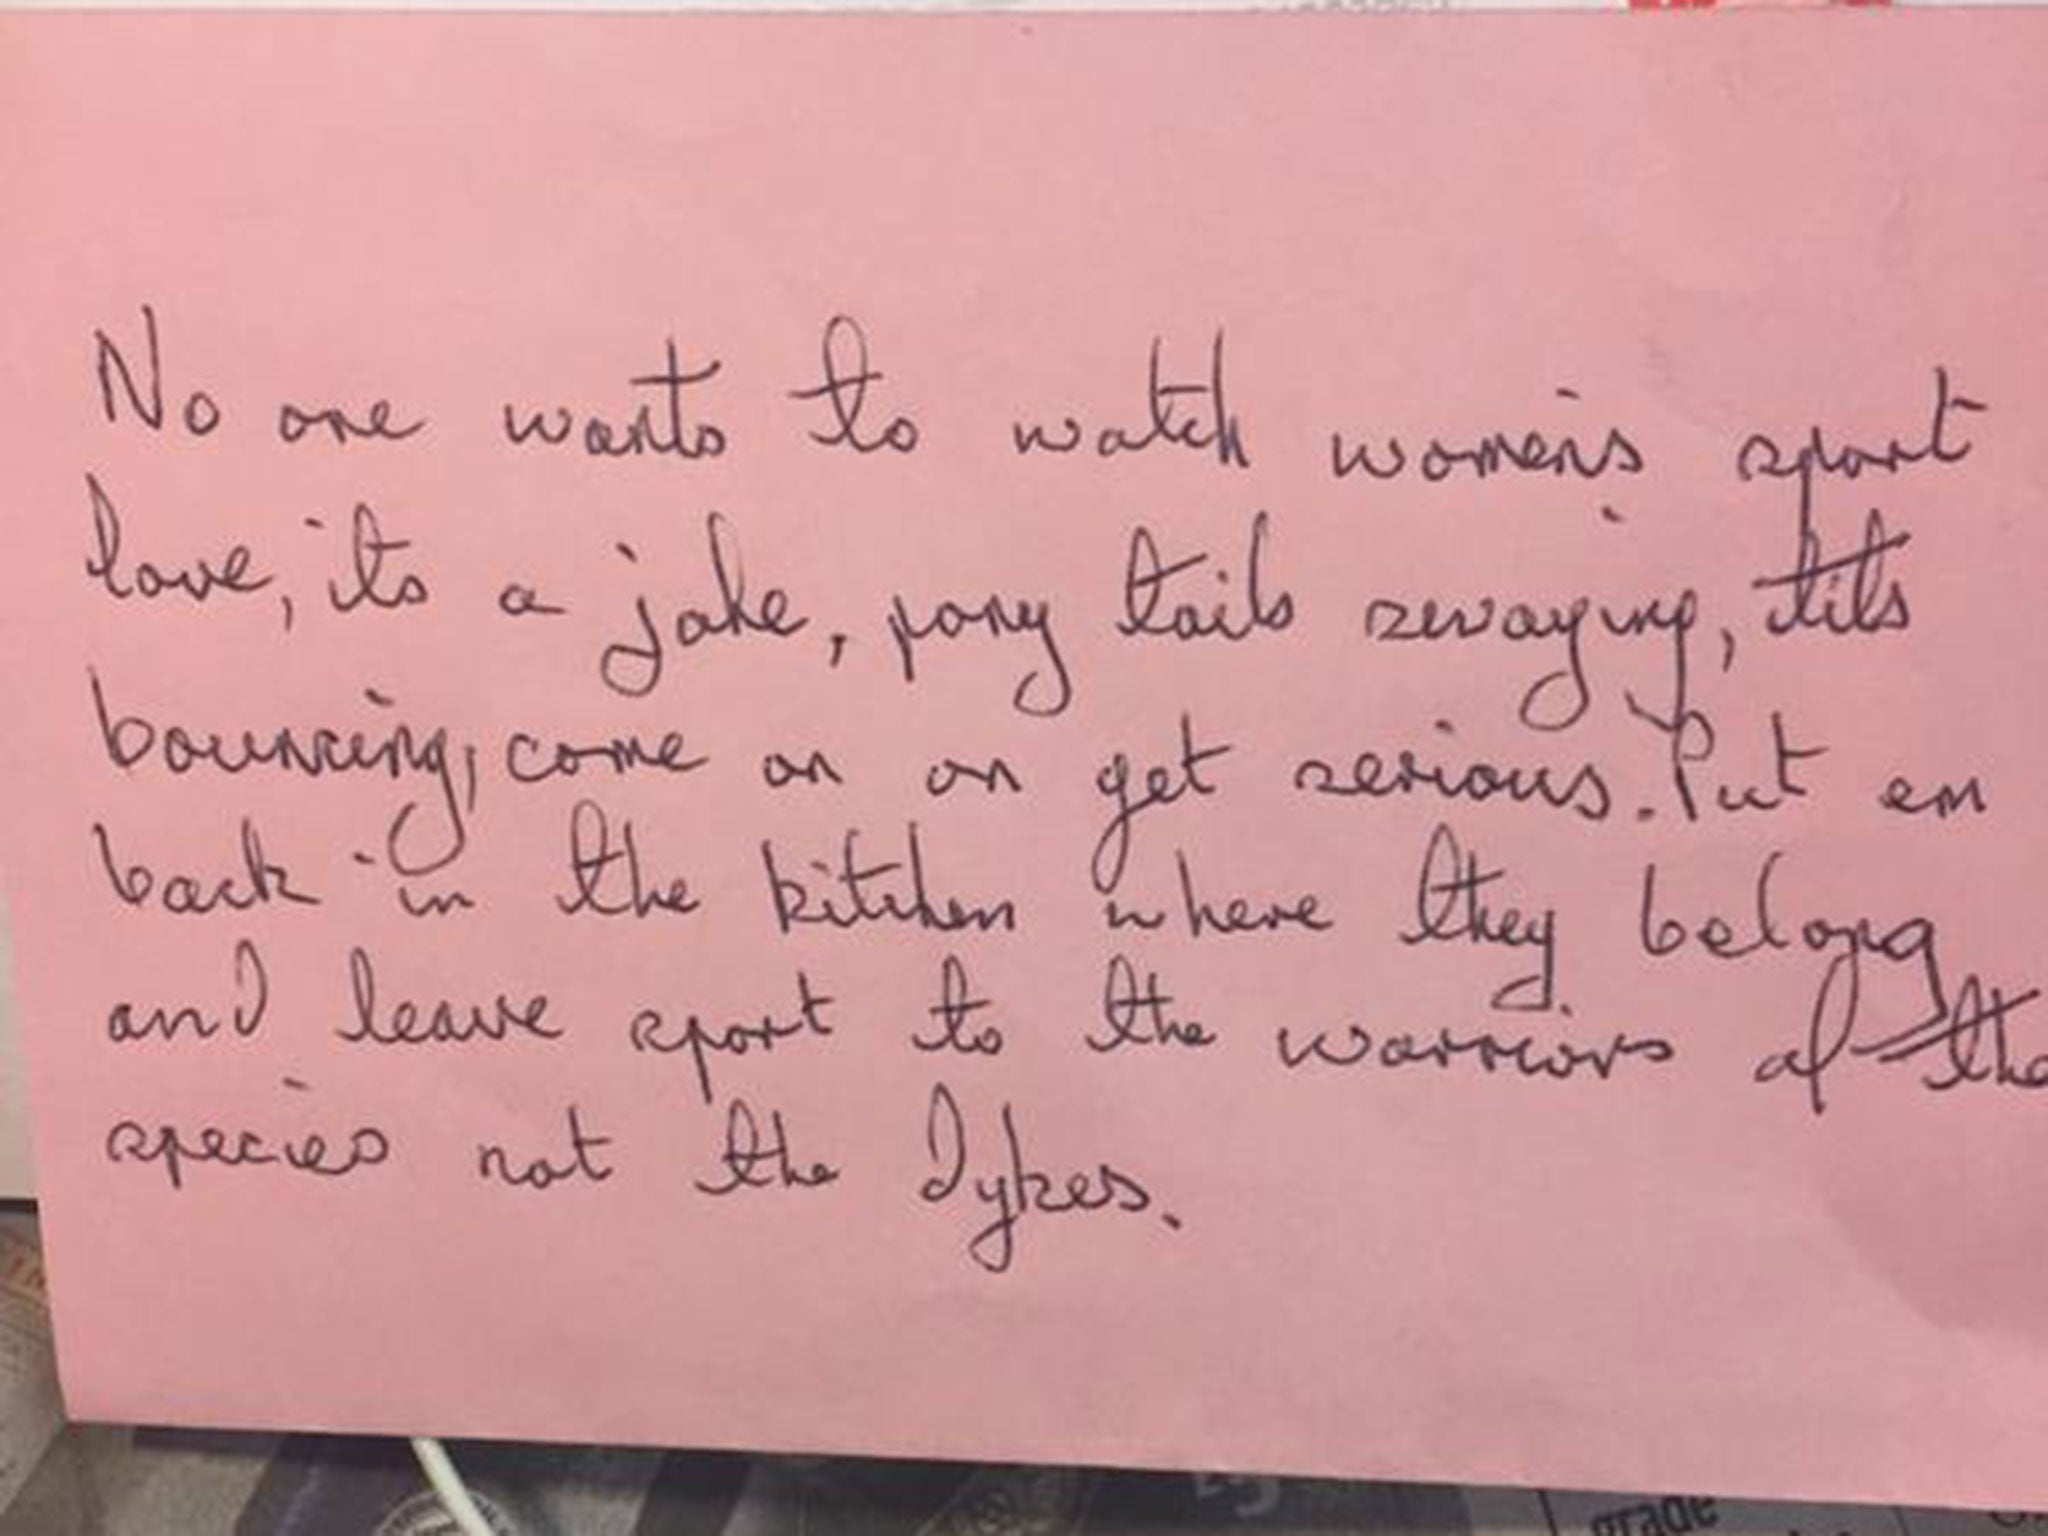 No one wants to watch women's sport
love, its a joke, pony tails swaying, tits
bouncing, come on on get serious. Put em
back in the kitchen where they belong
and leave sport to the warriors of the
species not the Dykes.
grade